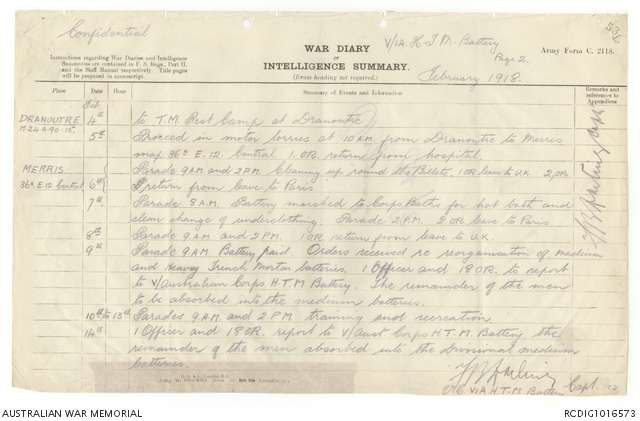 Confidential
V/1A. H.T.M. Battery
Page 2.
WAR DIARY
or
INTELLIGENCE SUMMARY.
(Erase heading not required.)
Army Form C. 2118.
Instructions regarding War Diaries and Intelligence
Summaries are contained in F. S. Regs., Part II.
and the Staff Manual respectively. Title pages
will be prepared in manuscript.
February 1918.
Place Date Hour Summary of Events and Information Remarks and references to Appendices
Feb.
DRANOUTRE 4th to T.M. Rest Camp at Dranoutre
M24A.90.15. 5th Proceed in motor lorries at 10 A.M. from Dranoutre to Merris
map 36A E.12. Central. 1 O.R. return from hospital.
MERRIS Parade 9 A.M. and 2 P.M. Cleaning up round the Billets. 1 OR leave to U.K. 2 OR
36A.E.12 Central 6th return from leave to Paris.
7th Parade 8 A.M. Battery marched to Corps Baths for hot bath and
clean change of underclothing. Parade 2 P.M. 2 OR leave to Paris.
8th Parade 9 A.M. and 2 P.M. 1 OR return from leave to U.K.
9th Parade 9 A.M. Battery paid. Orders received re reorganisation of medium
and Heavy Trench Mortar batteries. 1 Officer and 18 O.R. to report
to V/Australian Corps H.T.M. Battery. The remainder of the men
to be absorbed into the medium batteries.
10th to 13th Parades 9 A.M. and 2 P.M. training and recreation
14th 1 Officer and 18 OR. report to V/Aust Corps H.T.M. Battery, the
remainder of the men absorbed into the Divisional medium
batteries.
Capt.
O/C V/1A H.T.M. Battery
AUSTRALIAN WAR MEMORIAL
RCDIG1016573